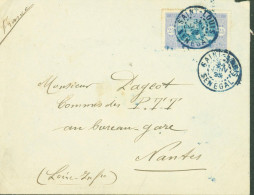 France
SAINT-LOUIS
SENEGAL
SAINT-LOUIS
SENEGAL
Monsieur Dageot
Commis des P.T.T
au bureau-gare
Nantes
(Loire-Infre)